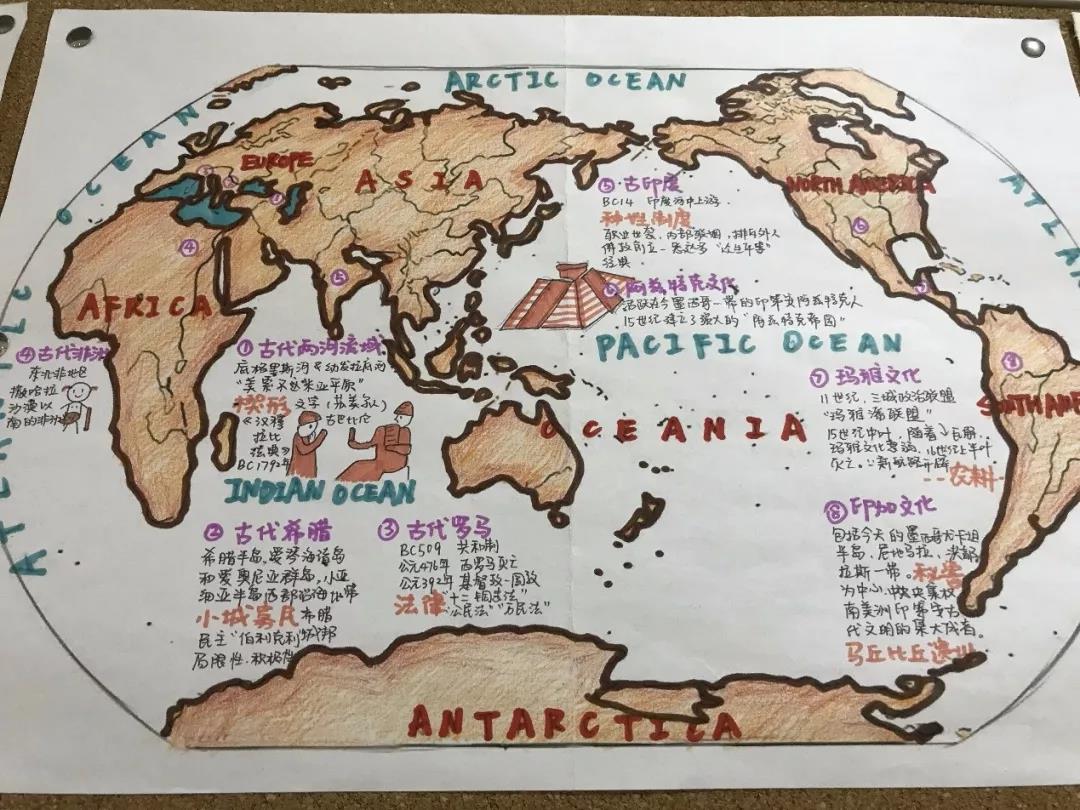 ARCTIC OCEAN
ATLANTIC OCEAN
EUROPE
ASIA
AFRICA
NORTH AMERICA
SOUTH AME
ATLAN
PACIFIC OCEAN
OCEANIA
INDIAN OCEAN
ANTARCTICA
⑤ 古印度
BC14 印度河中上游
种性制度
职业世袭、内部联姻，排斥外人
佛教创立
经典
⑥ 阿兹特克文化
活跃在今墨西哥一带的印第安阿兹特克人
15世纪建立了强大的“阿兹特克帝国”
④ 古代非洲
东北非地区
撒哈拉
沙漠以
南的非洲
① 古代两河流域
底格里斯河《幼发拉底河
“美索不达米亚平原”
楔形文字（苏美尔人）
《汉穆 古巴比伦
拉比
法典》
BC1792年
② 古代希腊
希腊半岛、爱琴海诸岛
和爱奥尼亚群岛，小亚
细亚半岛西部沿海地带
小城寡民 希腊
民主 伯利克利 城邦
局限性、积极性
③ 古代罗马
BC509 共和制
公元476年 西罗马灭亡
公元392年 基督教→国教
法律 “十二铜表法”
“公民法” “万民法”
⑦ 玛雅文化
11世纪，三城政治联盟
“玛雅潘联盟”
15世纪中叶，随着 瓦解，
玛雅文化衰落，16世纪上半叶
灭亡。 新航路开辟
农耕
⑧ 印加文化
包括今天的墨西哥尤卡坦
半岛、危地马拉、洪都
拉斯一带。秘鲁
为中心，中央集权
南美洲印第安古
代文明的集大成者。
马丘比丘遗